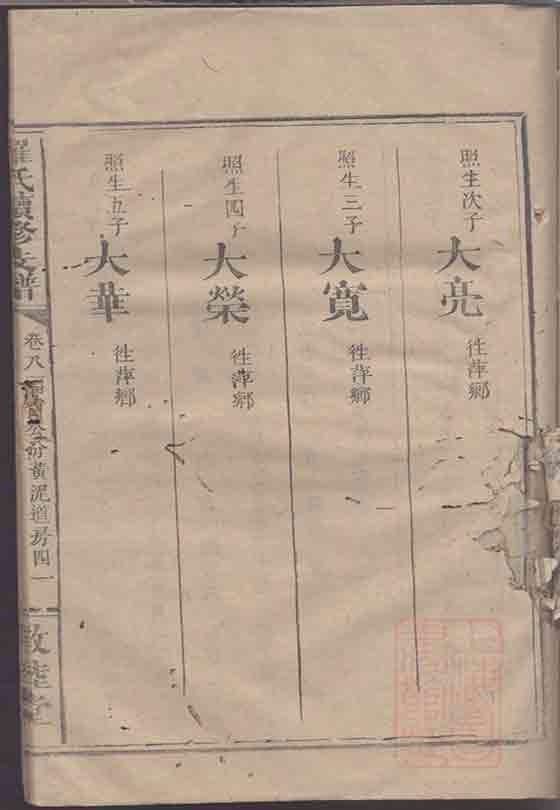 照生次子 大亮 徃萍鄉
照生三子 大寬 徃萍鄉
照生四子 大榮 徃萍鄉
照生五子 大華 徃萍鄉
羅氏續修支譜
卷八 公分黃泥道房四一
敦睦堂